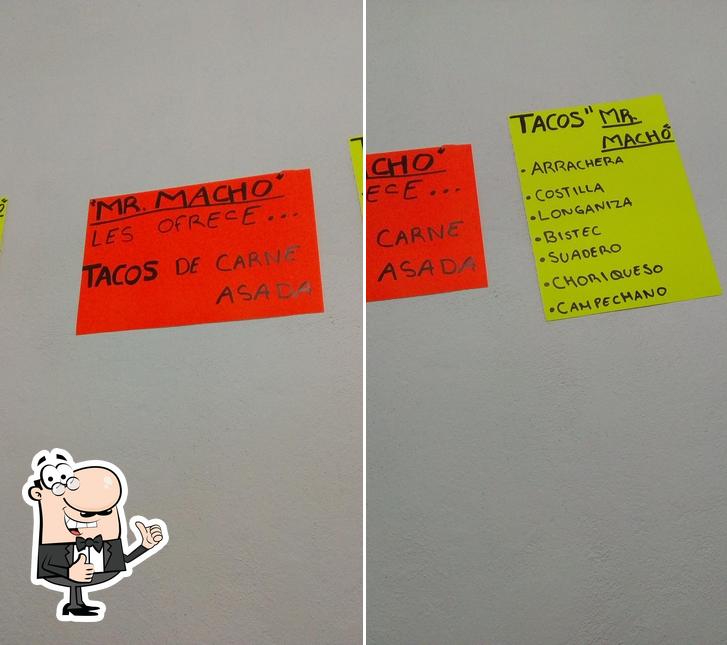 "MR. MACHO"
LES OFRECE...
TACOS DE CARNE
ASADA
CHO"
ECE...
CARNE
ASADA
TACOS" MR.
MACHO"
• ARRACHERA
• COSTILLA
• LONGANIZA
• BISTEC
• SUADERO
• CHORIQUESO
• CAMPECHANO